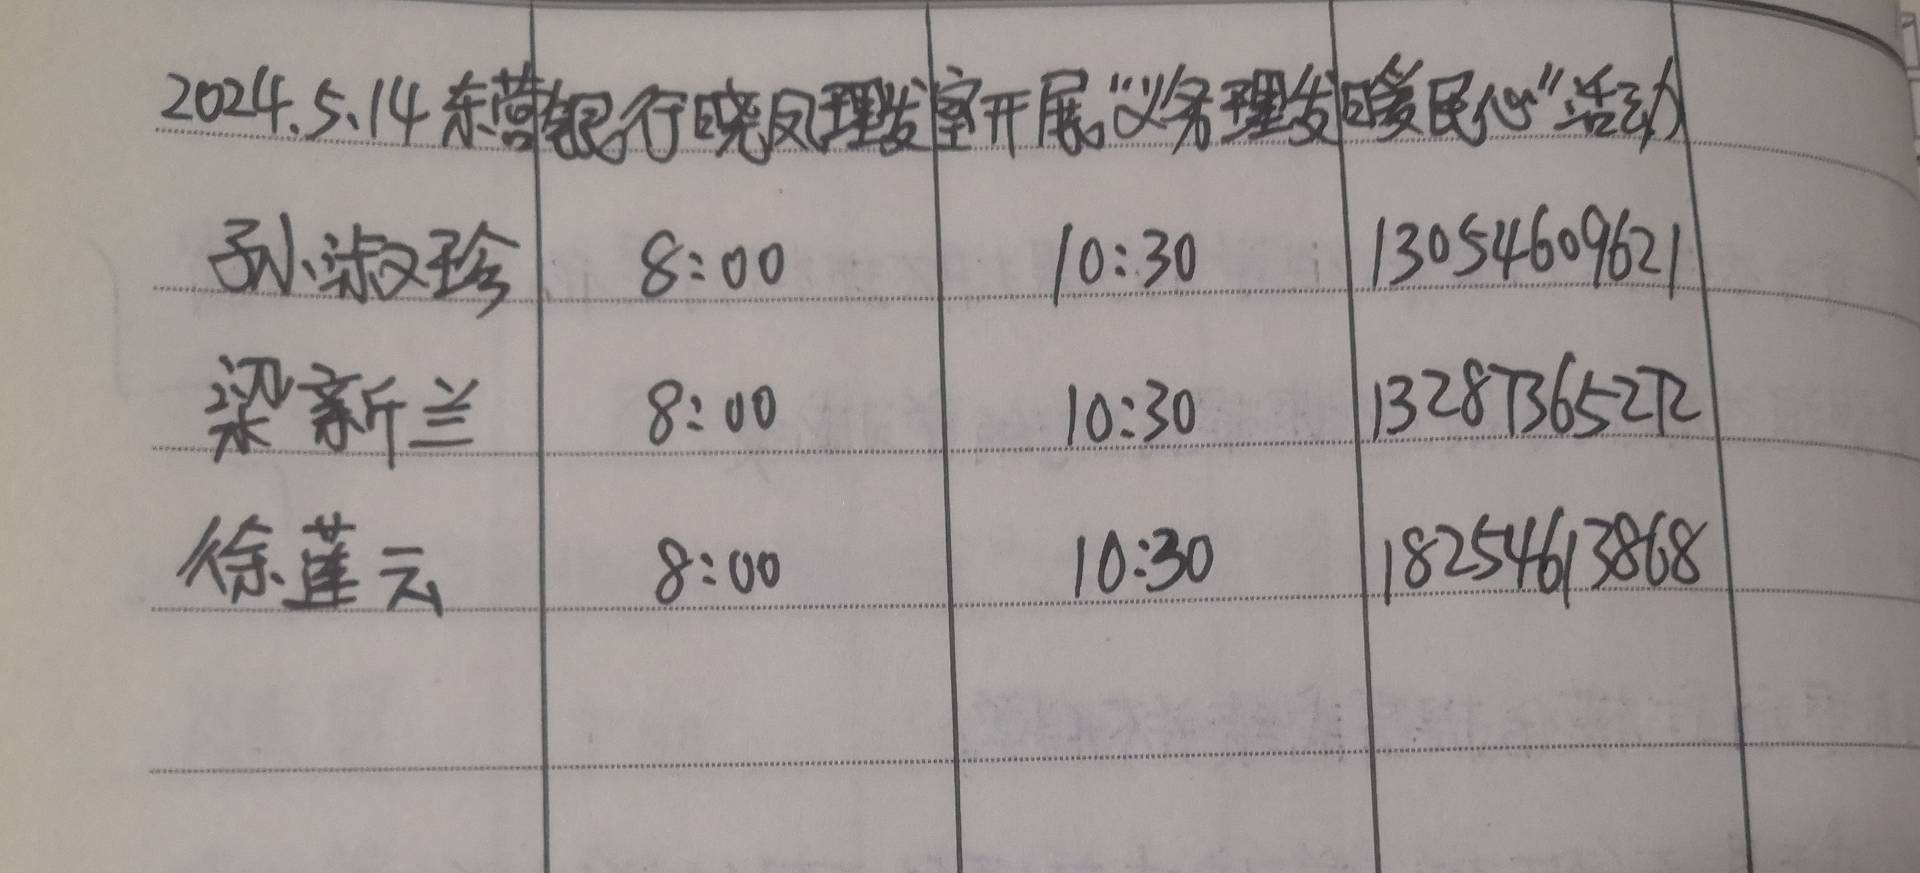 2024.5.14东营银行晓凤理发室开展“义务理发暖民心”活动
孙淑珍 8:00 10:30 13054609621
梁新兰 8:00 10:30 13287365272
徐莲云 8:00 10:30 18254613868